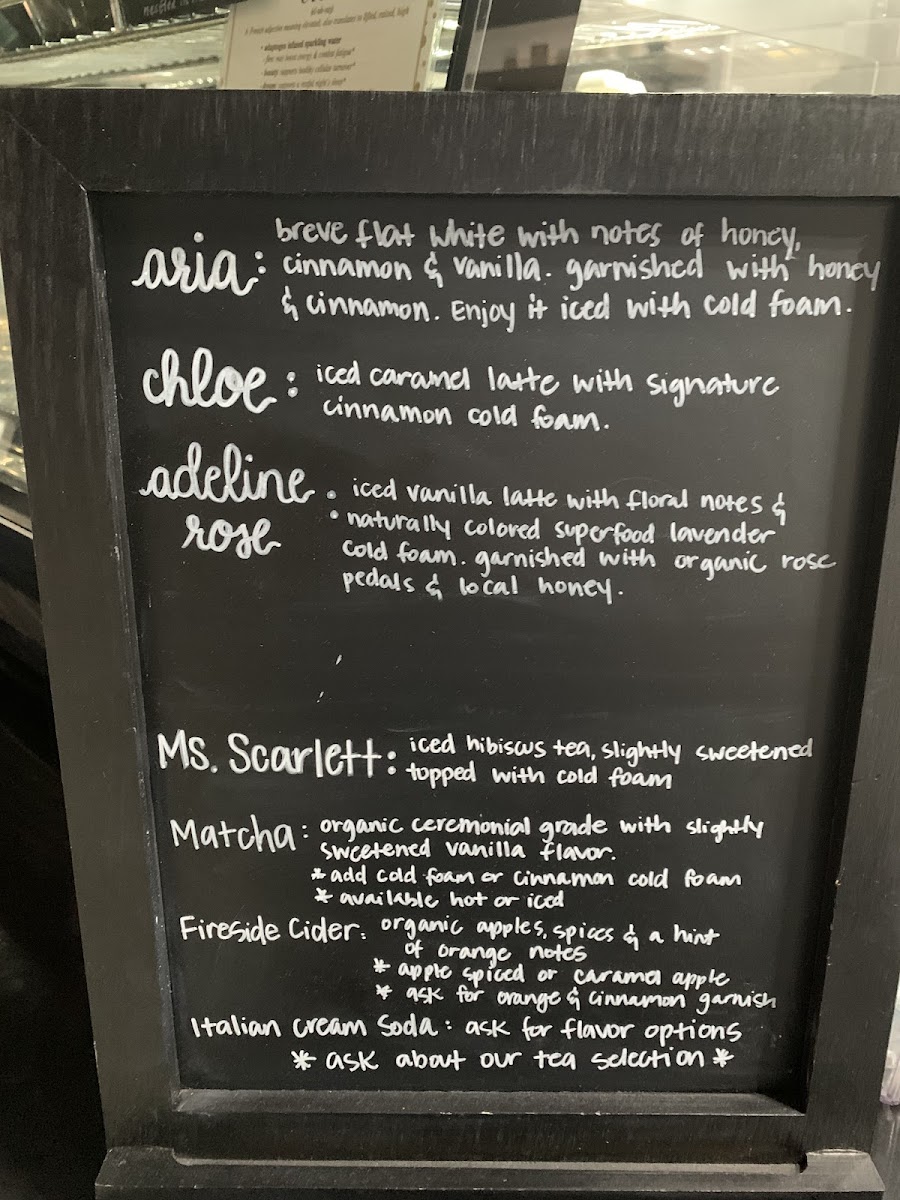 A French adjective meaning elevated, also translates to lifted, raised, high
• adaptogen infused sparkling water
breve flat white with notes of honey,
aria: cinnamon & vanilla. garnished with honey
& cinnamon. Enjoy it iced with cold foam.
chloe: iced caramel latte with signature
cinnamon cold foam.
adeline rose: iced vanilla latte with floral notes &
naturally colored superfood lavender
cold foam. garnished with organic rose
pedals & local honey.
Ms. Scarlett: iced hibiscus tea, slightly sweetened
topped with cold foam
Matcha: organic ceremonial grade with slightly
sweetened vanilla flavor.
* add cold foam or cinnamon cold foam
* available hot or iced
Fireside Cider: organic apples, spices & a hint
of orange notes
* apple spiced or caramel apple
* ask for orange & cinnamon garnish
Italian Cream Soda: ask for flavor options
* ask about our tea selection *